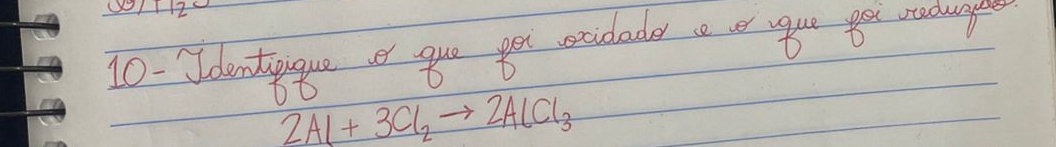 10 - Identifique o que foi oxidado e o que foi reduzido.
2Al + 3Cl₂ → 2AlCl₃